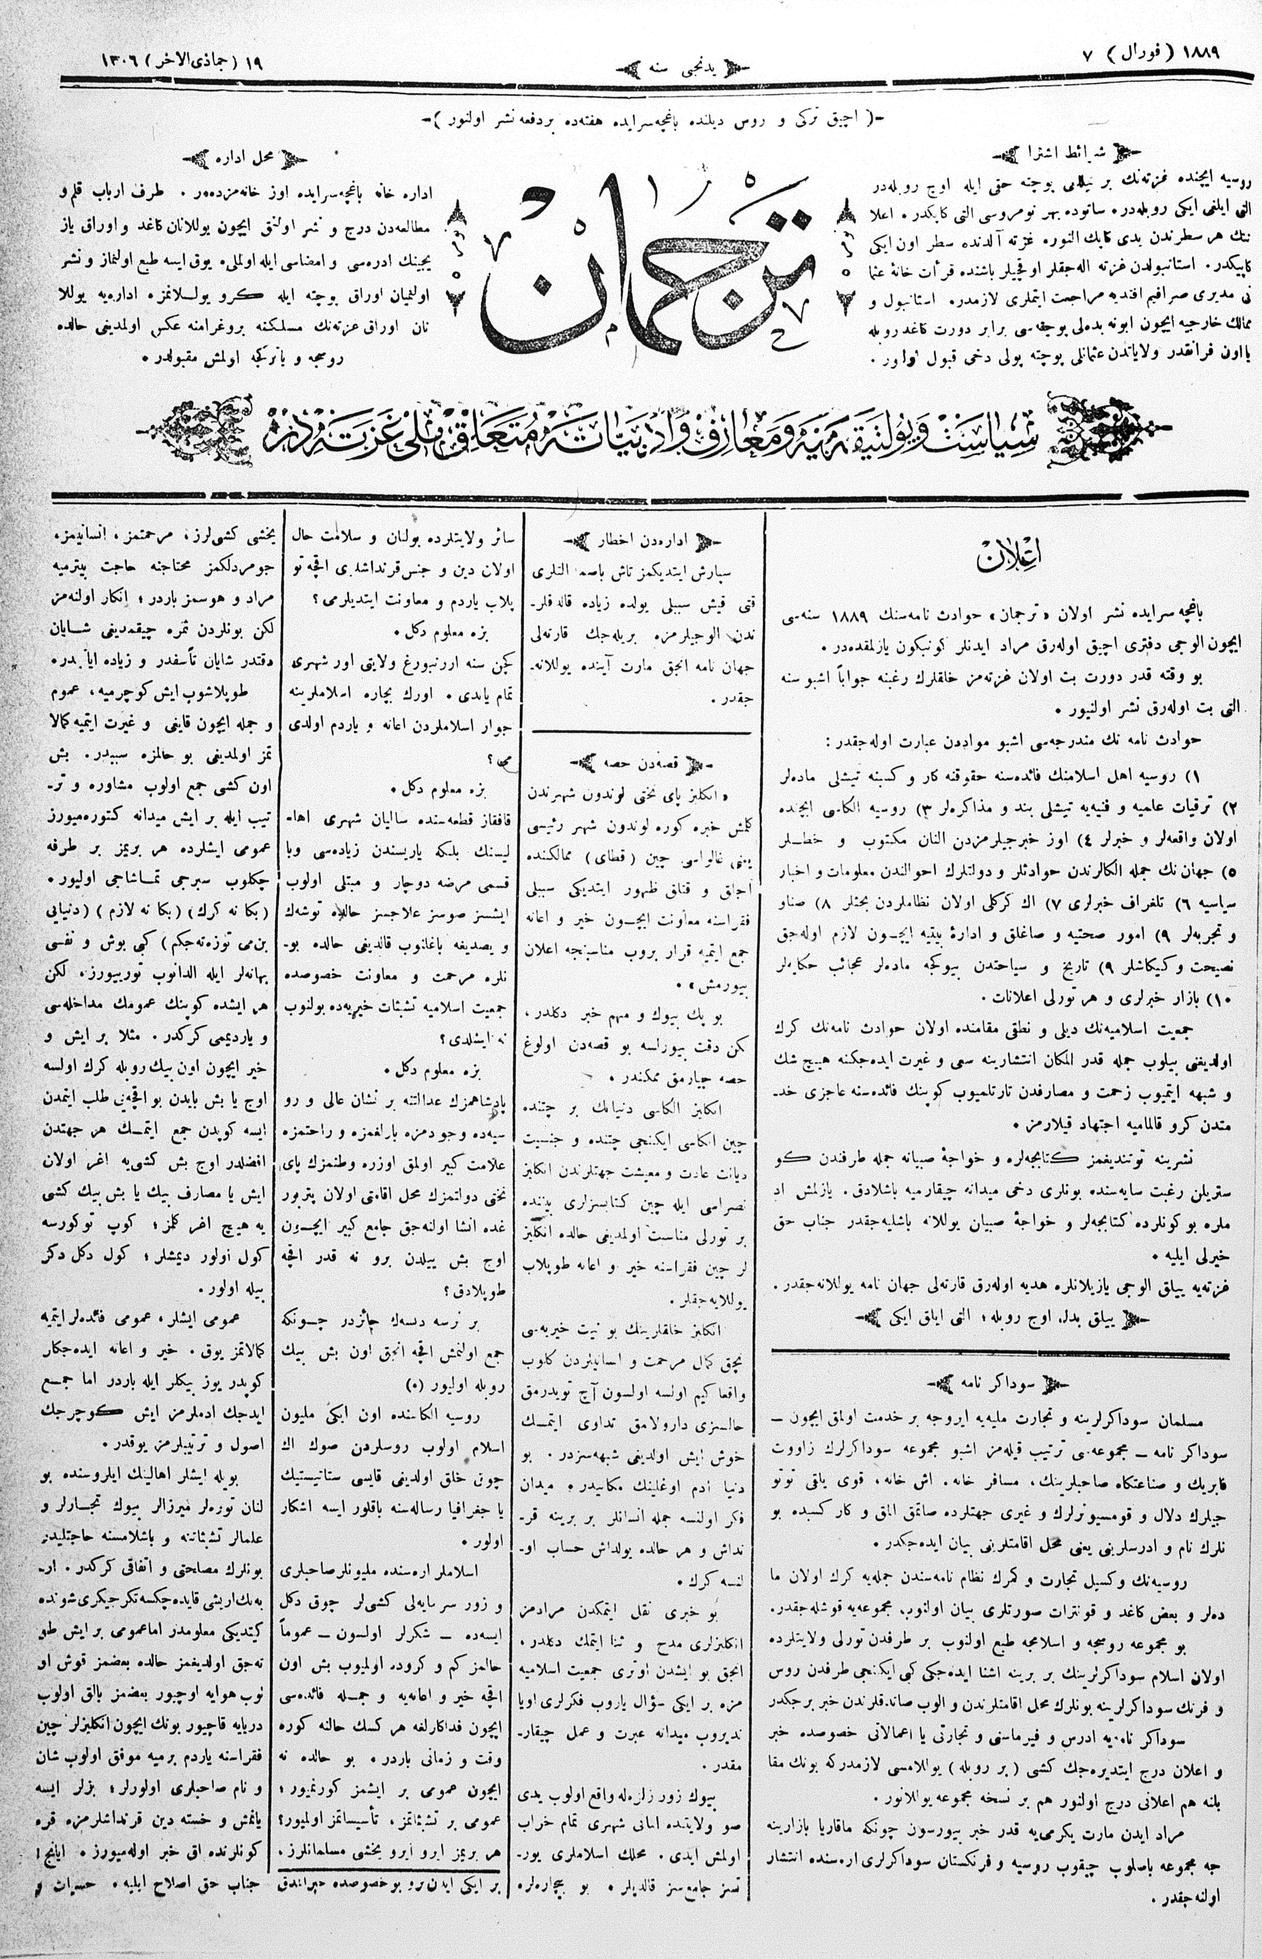 ١٨٨٩ (فورال) ٧
يدنجى سنه
١٩ (جماذى الاخر) ١٣٠٦
-( اچيق تركى و روس ديلنده باغچه سرايده هفته ده بر دفعه نشر اولنور )-
شرائط اشترا
روسيه ايچنده غزته نك بر ييللى پوچته حقى ايله اوچ روبله در
التى ايلغى ايكى روبله در. ساتوده بهر نومروسى التى كاپكدر. اعلا
نتك هر سطرندن يدى كاپك النور. غزته آلدنده سطر اون ايكى
كاپيكدر. استانبولدن غزته اله جقلر اوقچيلر باشنده قرأت خانۀ عثما
نى مديرى صرافيم افنديه مراجعت ايتملرى لازمدر. استانبول و
ممالك خارجيه ايچون ابونه بدلى پوچته سى برابر دورت كاغد روبله
يا اون فرانقدر ولاياتدن عثمانلى پوچته پولى دخى قبول اولور.
ترجمان
محل اداره
اداره خانه باغچه سرايده اوز خانه مزده در. طرف ارباب قلم و
مطالعه دن درج و نشر اولنق ايچون يوللانان كاغد و اوراق ياز
يجينك ادره سى و امضاسى ايله اولملى. يوق ايسه طبع اولنماز و نشر
اولنميان اوراق پوچته ايله كرو يوللانمز. اداره يه يوللا
نان اوراق غزته نك مسلكنه پروغرامنه عكس اولمديغى حالده
روسجه و ياتركجه اولمش مقبولدر.
سياست و پولتيقه مدنيه و معارف و ادبياته متعلق ملى غزته در
اعلان
باغچه سرايده نشر اولان «ترجمان» حوادث نامه سنك ١٨٨٩ سنه سى
ايچون الوجى دفترى اچيق اوله رق مراد ايدنلر كونيكون يازلمقده در.
بو وقته قدر دورت بت اولان غزته مز خلقلرك رغبنه جواباً اشبو سنه
التى بت اوله رق نشر اولنيور.
حوادث نامه نك مندرجه سى اشبو موادن عبارت اوله جقدر:
١) روسيه اهل اسلامنك فائده سنه حقوقنه كار و كسبنه تيشلى ماده لر
٢) ترقيات علميه و فنيه يه تيشلى بند و مذاكره لر ٣) روسيه الكاسى ايچنده
اولان واقعه لر و خبرلر ٤) اوز خبرجيلرمزدن النان مكتوب و خطلر
٥) جهان نك جمله الكالرندن حوادثلر و دولتلرك احوالندن معلومات و اخبار
سياسيه ٦) تلغراف خبرلرى ٧) اك كركلى اولان نظاملردن بحثلر ٨) صناو
و تجربه لر ٩) امور صحتيه و صاغلق و ادارۀ بيتيه ايچون لازم اوله جق
نصيحت و كيكاشلر ٩) تاريخ و سياحتدن بيوكجه ماده لر عجائب حكايه لر
١٠) بازار خبرلرى و هر تورلى اعلانات.
جمعيت اسلاميه نك ديلى و نطقى مقامنده اولان حوادث نامه نك كرك
اولديغنى بيلوب جمله قدر المكان انتشارينه سعى و غيرت ايده جكنه هيچ شك
و شبهه ايتميوب زحمت و مصارفدن تارتلميوب كوپنك فائده سنه عاجزى خد
متدن كرو قالماميه اجتهاد قيلارمز.
نشرينه توتنديغمز كتابچه لره و خواجۀ صبيانه جمله طرفندن كو
ستريلن رغبت سايه سنده بونلرى دخى ميدانه چيقارميه باشلادق. يازلمش اد
ملره بو كونلرده كتابچه لر و خواجۀ صبيان يوللانه باشليه جقدر جناب حق
خيرلى ايليه.
غزته يه ييللق الوجى يازيلانلره هديه اوله رق قارته لى جهان نامه يوللانه جقدر.
ييللق بدل اوچ روبله؛ التى ايلق ايكى
سوداكر نامه
مسلمان سوداكرلرينه و تجارت مليه يه ايروجه بر خدمت اولمق ايچون —
سوداكر نامه — مجموعه سى ترتيب قيله مز اشبو مجموعه سوداكرلرك زاووت
فابريك و صناعتكاه صاحبلرينك، مسافر خانه. اش خانه. قوى ياقى توتو
جيلرك دلال و قوميسيونرلرك و غيرى جهتلرده صاتمق المق و كار كسبده بو
نلرك نام و ادرسلرينى يعنى محل اقامتلرينى بيان ايده جكدر.
روسيه نك وكسيل تجارت و كمرك نظام نامه سندن جمله يه كرك اولان ما
ده لر و بعض كاغد و قونترات صورتلرى بيان اولنوب مجموعه يه قوشله جقدر.
بو مجموعه روسجه و اسلامجه طبع اولنوب بر طرفدن تورلى ولايتلرده
اولان اسلام سوداكرلرينك بر برينه اشنا ايده جكى كبى ايكنجى طرفدن روس
و فرنك سوداكرلرينه بونلرك محل اقامتلرندن و الوب صاتدقلرندن خبر برجكدر
سوداكر نامه يه ادرس و فيرماسنى و تجارتى يا اعمالاتى خصوصده خبر
و اعلان درج ايتديره جك كشى (بر روبله) يوللامسى لازمدركه بونك مقا
بلنه هم اعلانى درج اولنور هم بر نسخه مجموعه يوللانور.
مراد ايدن مارت يكرمى يه قدر خبر بيورسون چونكه ماقاريا بازارينه
جه مجموعه باصلوب چيقوب روسيه و فرنكستان سوداكرلرى اره سنده انتشار
اولنه جقدر.
اداره دن اخطار
سپارش ايتديكمز تاش باصمه التلرى
قتى قيش سببلى يولده زياده قالدقلر
ندن الوجيلرمزه بريله جك قارته لى
جهان نامه انجق مارت آينده يوللانه
جقدر.
قصه دن حصه
«انكليز پاى تختى لوندون شهرندن
كلمش خبره كوره لوندون شهر رئيسى
يعنى غالواسى چين (قطاى) ممالكنده
آچلق و قتلق ظهور ايتديكى سببلى
فقراسنه معاونت ايچون خير و اعانه
جمع ايتميه قرار بروب مناسبنجه اعلان
بيورمش».
بو پك بيوك و مهم خبر دكلدر،
لكن دقت بيورلسه بو قصه دن اولوغ
حصه چيارمق ممكندر.
انكليز الكاسى دنيانك بر چتنده
چين الكاسى ايكنجى چتنده و جنسيت
ديانت عادت و معيشت جهتلرندن انكليز
نصراسى ايله چين كتابسزلرى بيننده
بر تورلى مناسبت اولمديغى حالده انكليز
لر چين فقراسنه خير و اعانه طوپلاب
يوللايه جقلر.
انكليز خلقلرينك بو نيت خيريه سى
پچق كمال مرحمت و انسانيلردن كلوب
واقعا كيم اولسه اولسون آچ تويدرمق
حالسزى دارولامق تداوى ايتمك
خوش ايش اولديغى شبهه سزدر. بو
دنيا ادم اوغلينك مكانيدر. ميدان
فكر اولنسه جمله انسانلر بر برينه قر
نداش و هر حالده يولداش حساب او
لنسه كرك.
بو خبرى نقل ايتمكدن مرادمز
انكليزلرى مدح و ثنا ايتمك دكلدر.
انجق بو ايشدن اوترى جمعيت اسلاميه
مزه بر ايكى سؤال ياروب فكرلرى اويا
نديروب ميدانه عبرت و عمل چيقار
مقدر.
بيوك زور زلزله واقع اولوب يدى
صو ولايتنده المانى شهرى تمام خراب
اولمش ايدى. محلك اسلاملرى يور
تسز جامع سز قالديلر. بو بيچاره لره
سائر ولايتلرده بولنان و سلامت حال
اولان دين و جنس قرنداشلرى اقچه تو
پلاب ياردم و معاونت ايتديلرمى؟
بزه معلوم دكل.
كچن سنه اورنبورغ ولايتى اور شهرى
تمام ياندى. اورك بيچاره اسلاملرينه
جوار اسلاملردن اعانه و ياردم اولدى
مى؟
بزه معلوم دكل.
قافقاز قطعه سنده ساليان شهرى اها
ليسنك بلكه ياريسندن زياده سى وبا
قسمى مرضه دوچار و مبتلى اولوب
ايشسز صوسز علاجسز حالده توشه ك
و يصديغه باغلنوب قالديغى حالده بو
نلره مرحمت و معاونت خصوصده
جمعيت اسلاميه تشبثات خيريه ده بولنوب
نه ايشلدى؟
بزه معلوم دكل.
پادشاهمزك عدالتنه بر نشان عالى و رو
سيه ده وجودمزه بارلغمزه و راحتمزه
علامت كبير اولمق اوزره وطنمزك پاى
تختى دولتمزك محل اقامتى اولان پتربور
غده انشا اولنه جق جامع كبير ايچون
اوچ بش ييلدن برو نه قدر اقچه
طوپلادق؟
بر نرسه ديسه ك جائزدر چونكه
جمع اولنمش اقچه انجق اون بش بيك
روبله اولور (٥)
روسيه الكاسنده اون ايكى مليون
اسلام اولوب روسلردن صوك اك
چون خلق اولديغى قايسى ستاتيستيك
يا جغرافيا رساله سنه باقلور ايسه اشكار
اولور.
اسلاملر اره سنده مليونلر صاحبلرى
و زور سرمايه لى كشى لر چوق دكل
ايسه ده — شكرلر اولسون — عموماً
حالمز كم و كروده اولميوب بش اون
اقچه خير و اعانه يه و جمله فائده سى
ايچون فداكارلغه هر كسك حالنه كوره
وقت و زمانى باردر. بو حالده نه
ايچون عمومى بر ايشمز كورنميور؛
عمومى بر تشبثاتمز، تأسيساتمز اولميور؟
هر بريمز ايرو ايرو يخشى مسلمانلرز.
بر ايكى ايدن برو بو خصوصده خبر اندق
يخشى كشى لرز، مرحمتمز، انسانيتمز،
جومردلكمز محتاجنه حاجت بيترميه
مراد و هوسمز باردر؛ انكار اولنه مز
لكن بونلردن ثمره چيقمديغى شايان
دقتدر شايان تأسفدر و زياده ايانيده.
طوپلاشوب ايش كوچرميه، عموم
و جمله ايچون قايغى و غيرت ايتميه كمالا
تمز اولمديغى بو حالمزه سببدر. بش
اون كشى جمع اولوب مشاوره و تر
تيب ايله بر ايش ميدانه كتوره ميورز
عمومى ايشلرده هر بريمز بر طرفه
چكلوب سيرجى تماشاجى اوليور.
(بكا نه كرك) (بكا نه لازم) (دنيايى
بن مى توزه ته جكم) كبى بوش و نفسى
بهانه لر ايله الدانوب توربيورز. لكن
هر ايشده كوپنك عمومك مداخله سى
و يارديمى كركدر. مثلا بر ايش و
خير ايچون اون بيك روبله كرك اولسه
اوچ يا بش بايدن بو اقچه يى طلب ايتمدن
ايسه كوپدن جمع ايتمك هر جهتدن
افضلدر اوچ بش كشى يه اغر اولان
ايش يا مصارف بيك يا بش بيك كشى
يه هيچ اغر كلمز؛ كوپ توكورسه
كول اولور ديمشلر؛ كول دكل دكز
بيله اولور.
عمومى ايشلر، عمومى فائده لر ايتميه
كمالاتمز يوق. خير و اعانه ايده جكلر
كوپدر يوز بيكلر ايله باردر اما جمع
ايدجك ادملرمز ايش كوچرجك
اصول و ترتيبلرمز يوقدر.
بويله ايشلر اهالينك ايلروسنده بو
لنان توره لر ميرزالر بيوك تجارلر و
علمالر تشبثاتنه و باشلامسنه حاجتليدر
بونلرك مصلحتى و اتفاقى كركدر. ار
به نك اريشى قايده چكسه تكرجيكرى شونده
كيتديكى معلومدر اما عمومى بر ايش طو
ته جق اولديغمز حالده بعضمز قوش او
لوب هوايه اوچيور بعضمز بالق اولوب
دريايه قاچيور بونك ايچون انكليزلر چين
فقراسنه ياردم برميه موفق اولوب شان
و نام صاحبلرى اولورلر؛ بزلر ايسه
يانمش و خسته دين قرنداشلرمزه قره
كونلرنده اق خبر اوله ميورز.
جناب حق اصلاح ايليه. حسيات و